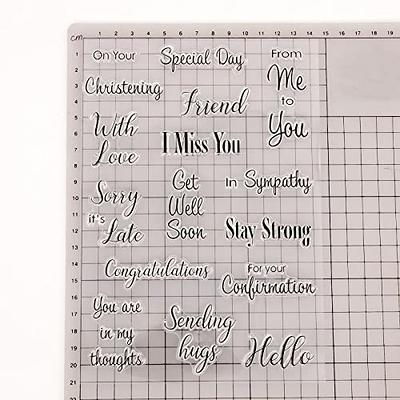 cm 1 2 3 4 5 6 7 8 9 10 11 12 13 14 15 16 17 18 19
On Your Special Day From
Christening Me
Friend to
With You
Love I Miss You
Get in Sympathy
Sorry Well
it's
Late Soon Stay Strong
Congratulations For your
Confirmation
You are
in my Sending
thoughts hugs Hello
1
2
3
4
5
6
7
8
9
10
11
12
13
14
15
16
17
18
19
20